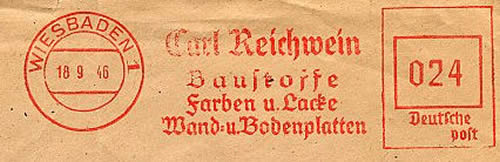 WIESBADEN 1
18 9 46
Carl Reichwein
Baustoffe
Farben u. Lacke
Wand- u. Bodenplatten
024
Deutsche
post